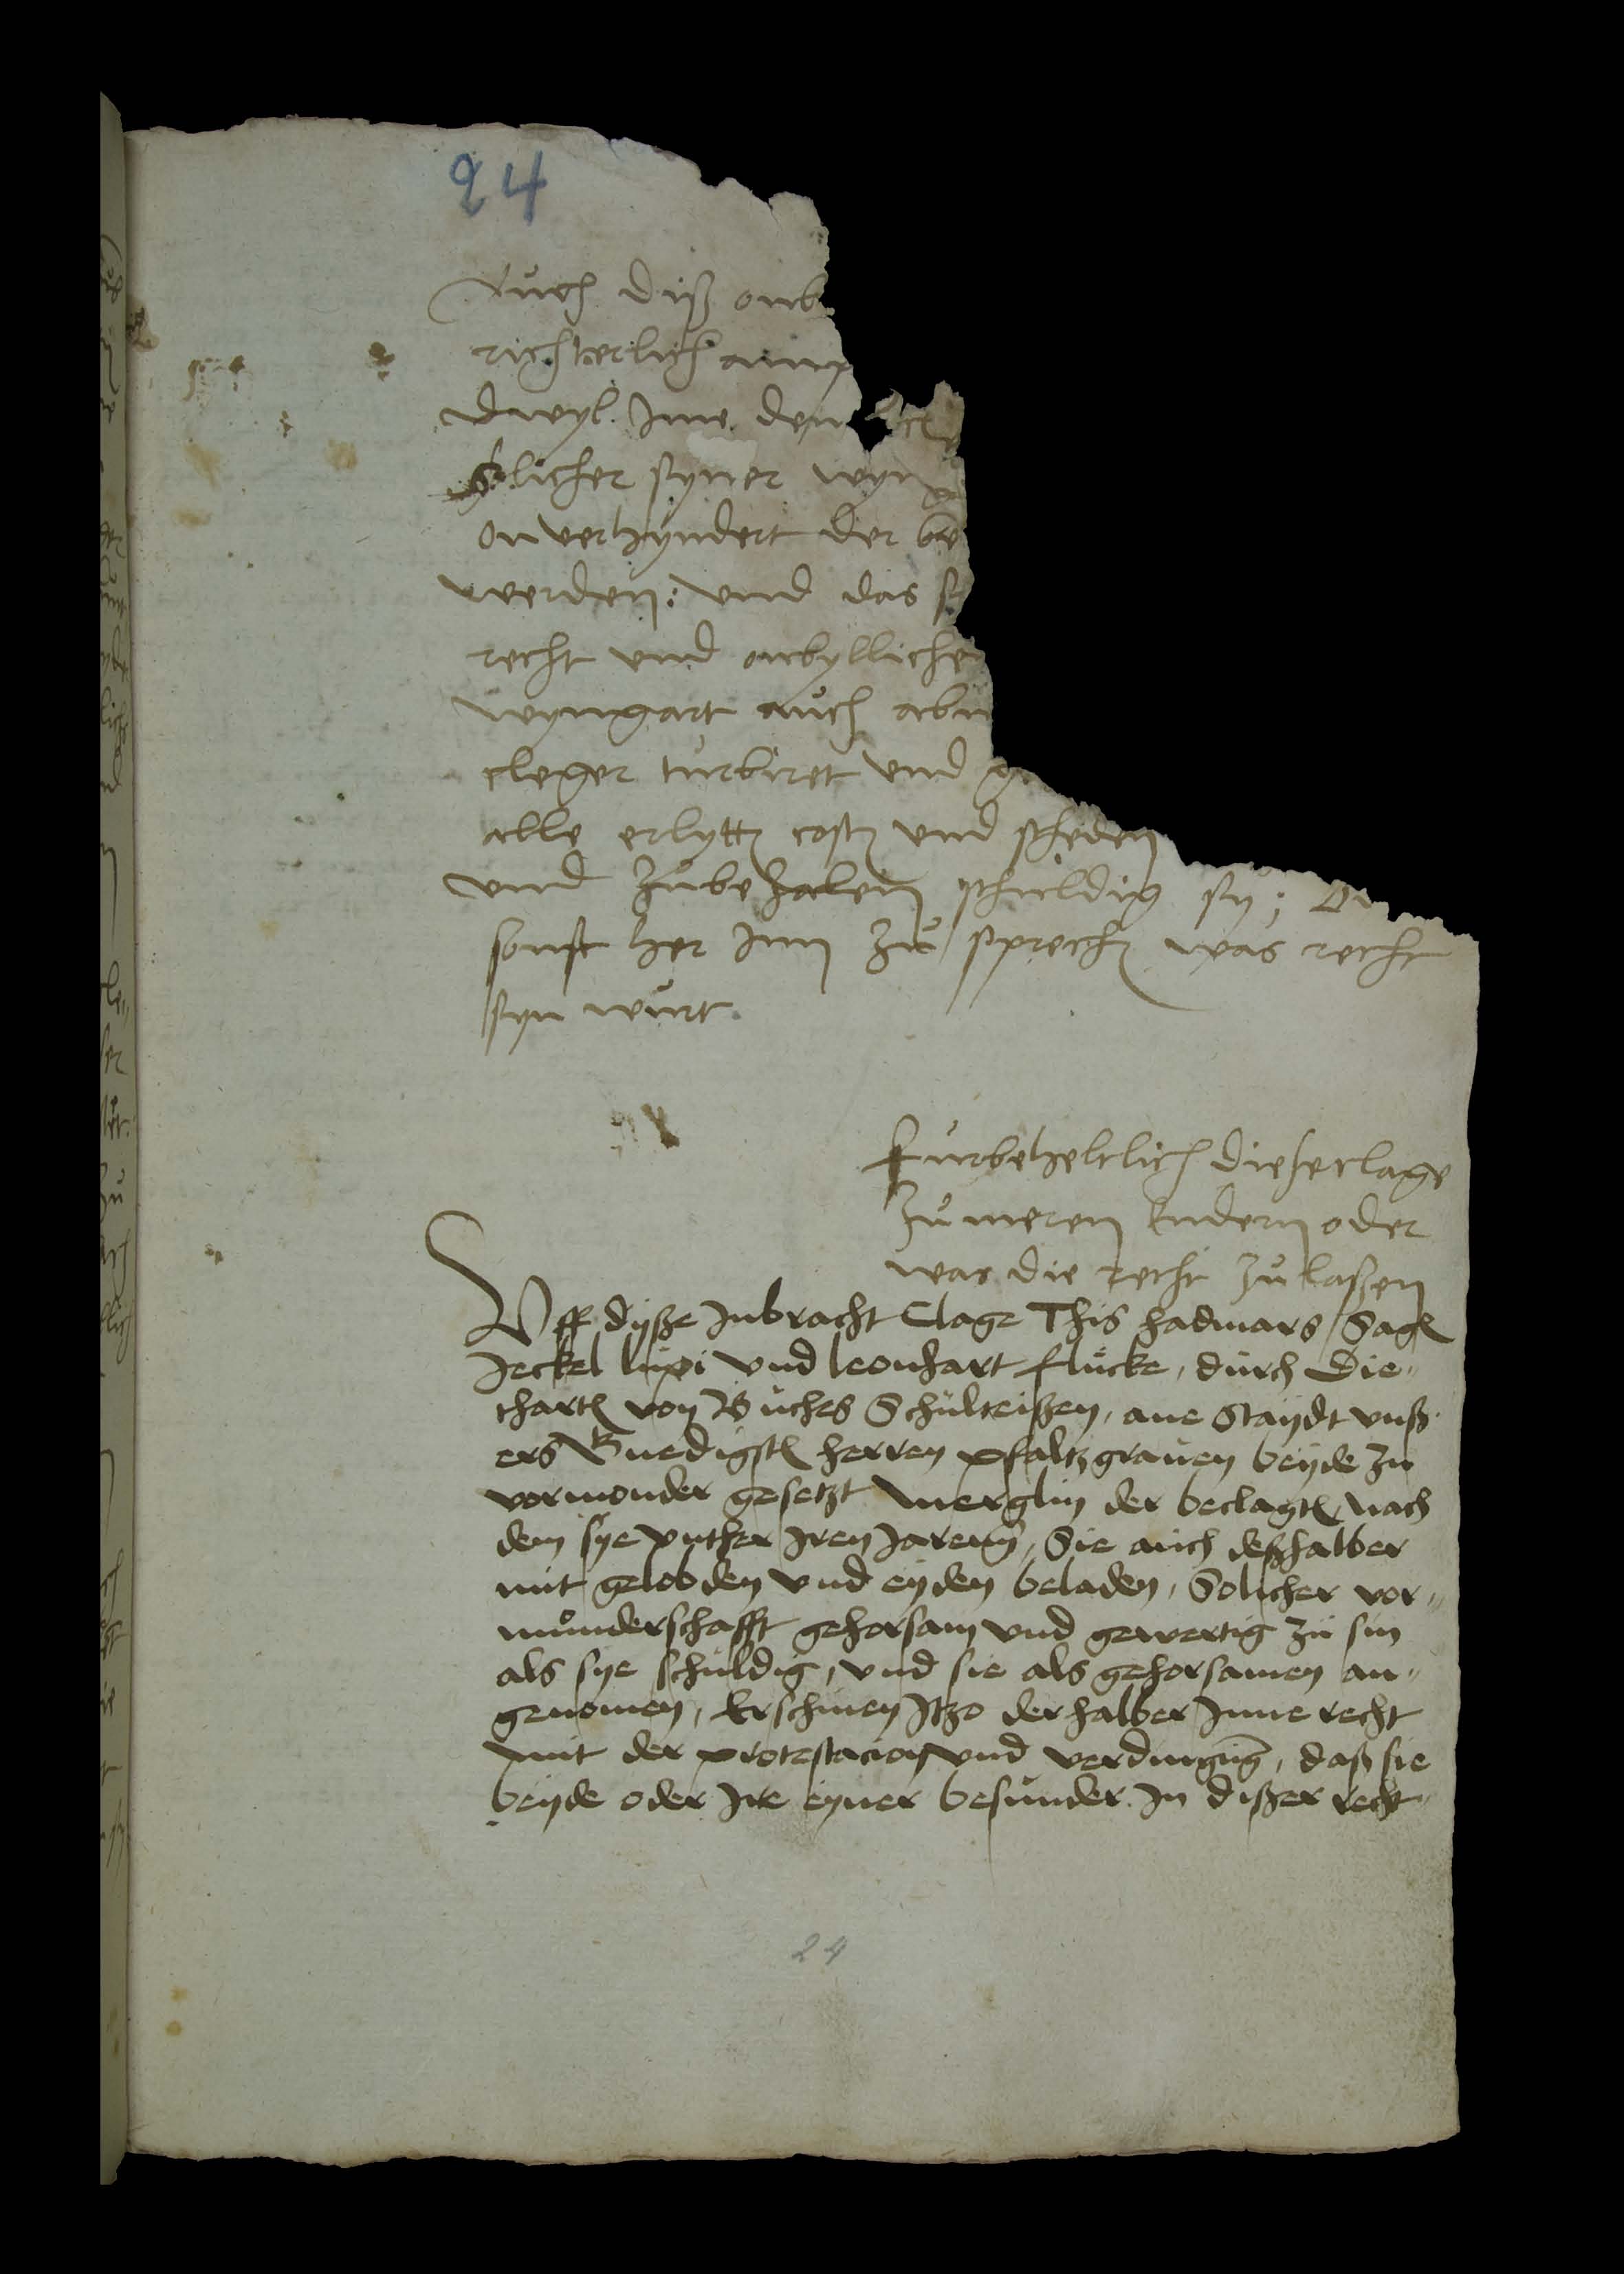 24
Auch diß onb
richterlich amp
Dwyl Ime den
Solicher syner wyng
onverhyndert der be
werden: und das s
recht und onbyllicher
wyngart auch abn
cleger turbiret und g
alle erlytt cost und scheden
und zubezalen schuldig sy;
sonst her Inn zu sprech was recht
syn wurt.
furbeheltlich dieser clage
zu meren Endern oder
was die recht zulaßen
Uff dyße Inbracht Clage This hadmars Sag
Jeckel lupi und leonhart flucke, durch Die„
thart von Buches Schulteißen, ane Staydt unß
ers Gnedigst herren pfaltzgraven beyde zu
vormonder gesetzt Merglin der beclagt, nach
dem sye unther Iren Jaren, Sie auch deßhalber
mit gelobden und eyden beladen, Solicher vor„
munderschafft gehorsam und gewertig zu sin
als sye schuldig, und sie als gehorsamen an„
genomen, Erschinen Itzo derhalber Inne recht
mit der protestacion und verdingung, daß sie
beyde oder Ire eyner besunder In dißer recht„
24